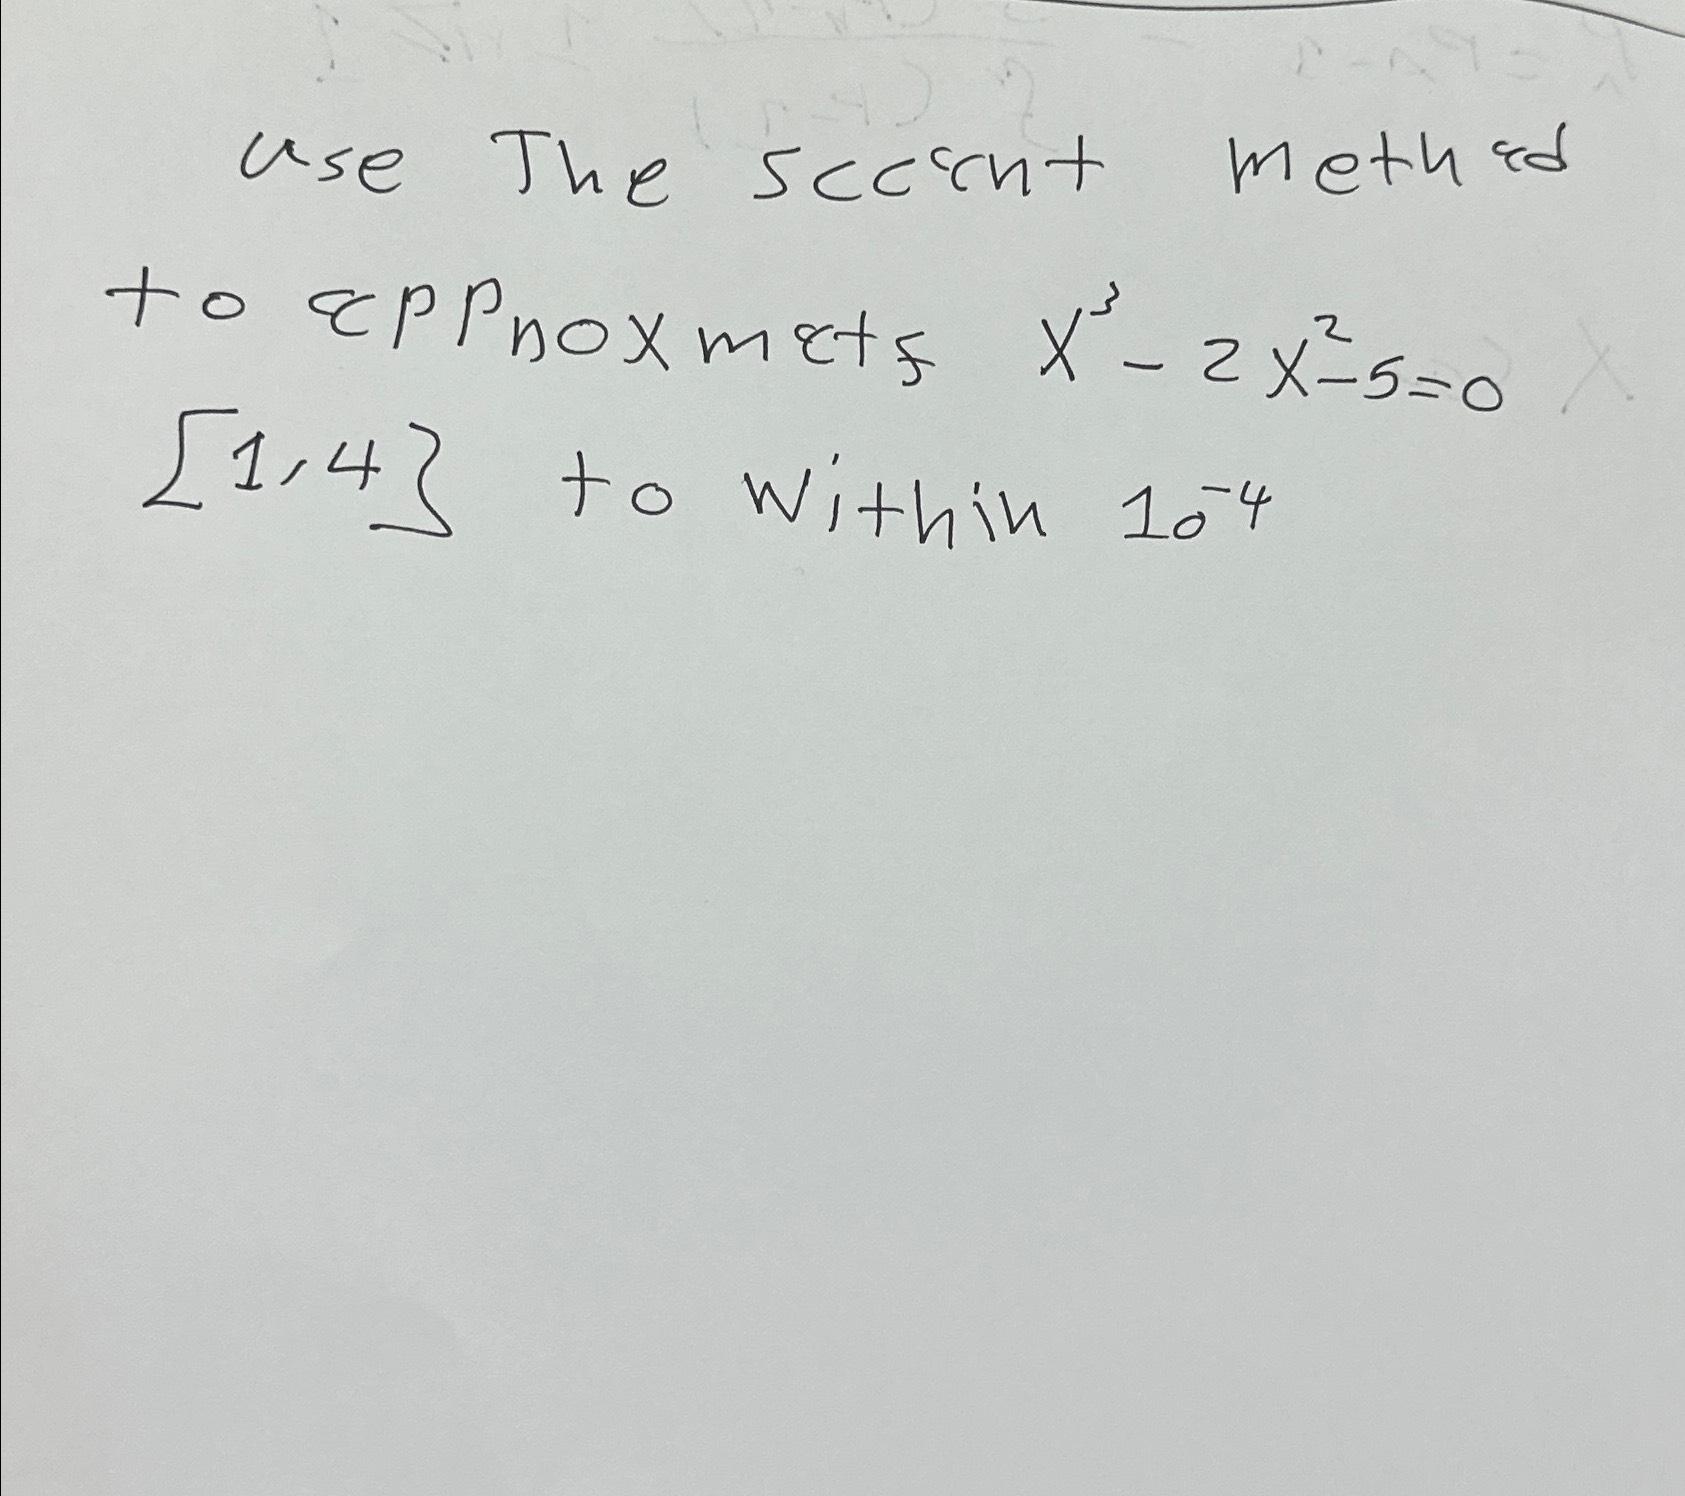 use The secant method
to approxmats x³ - 2x² - 5 = 0
[1,4] to within 10⁻⁴